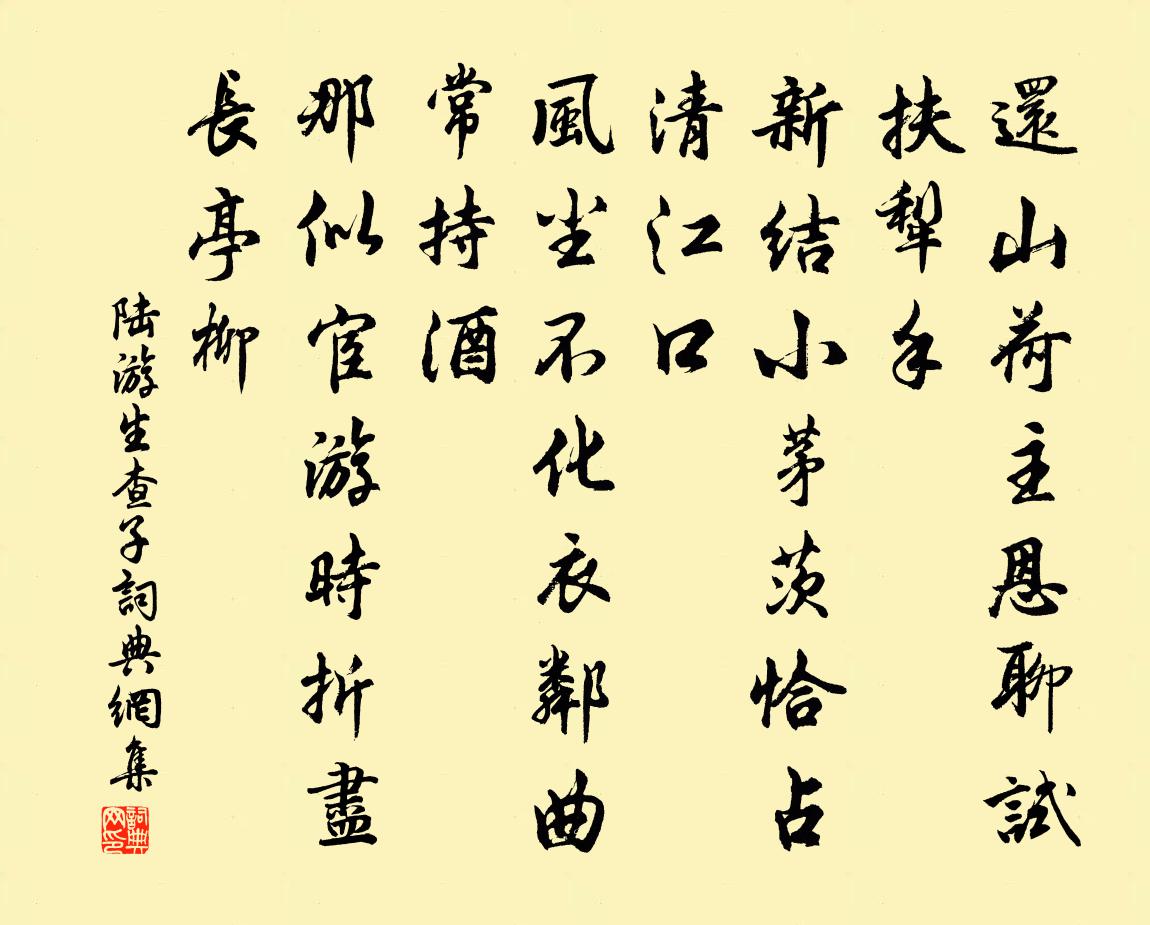 還山荷主恩聊試
扶犁手
新結小茅茨恰占
清江口
風尘不化衣鄰曲
常持酒
那似宦游時折盡
長亭柳
陆游生查子詞典網集
詞典网印